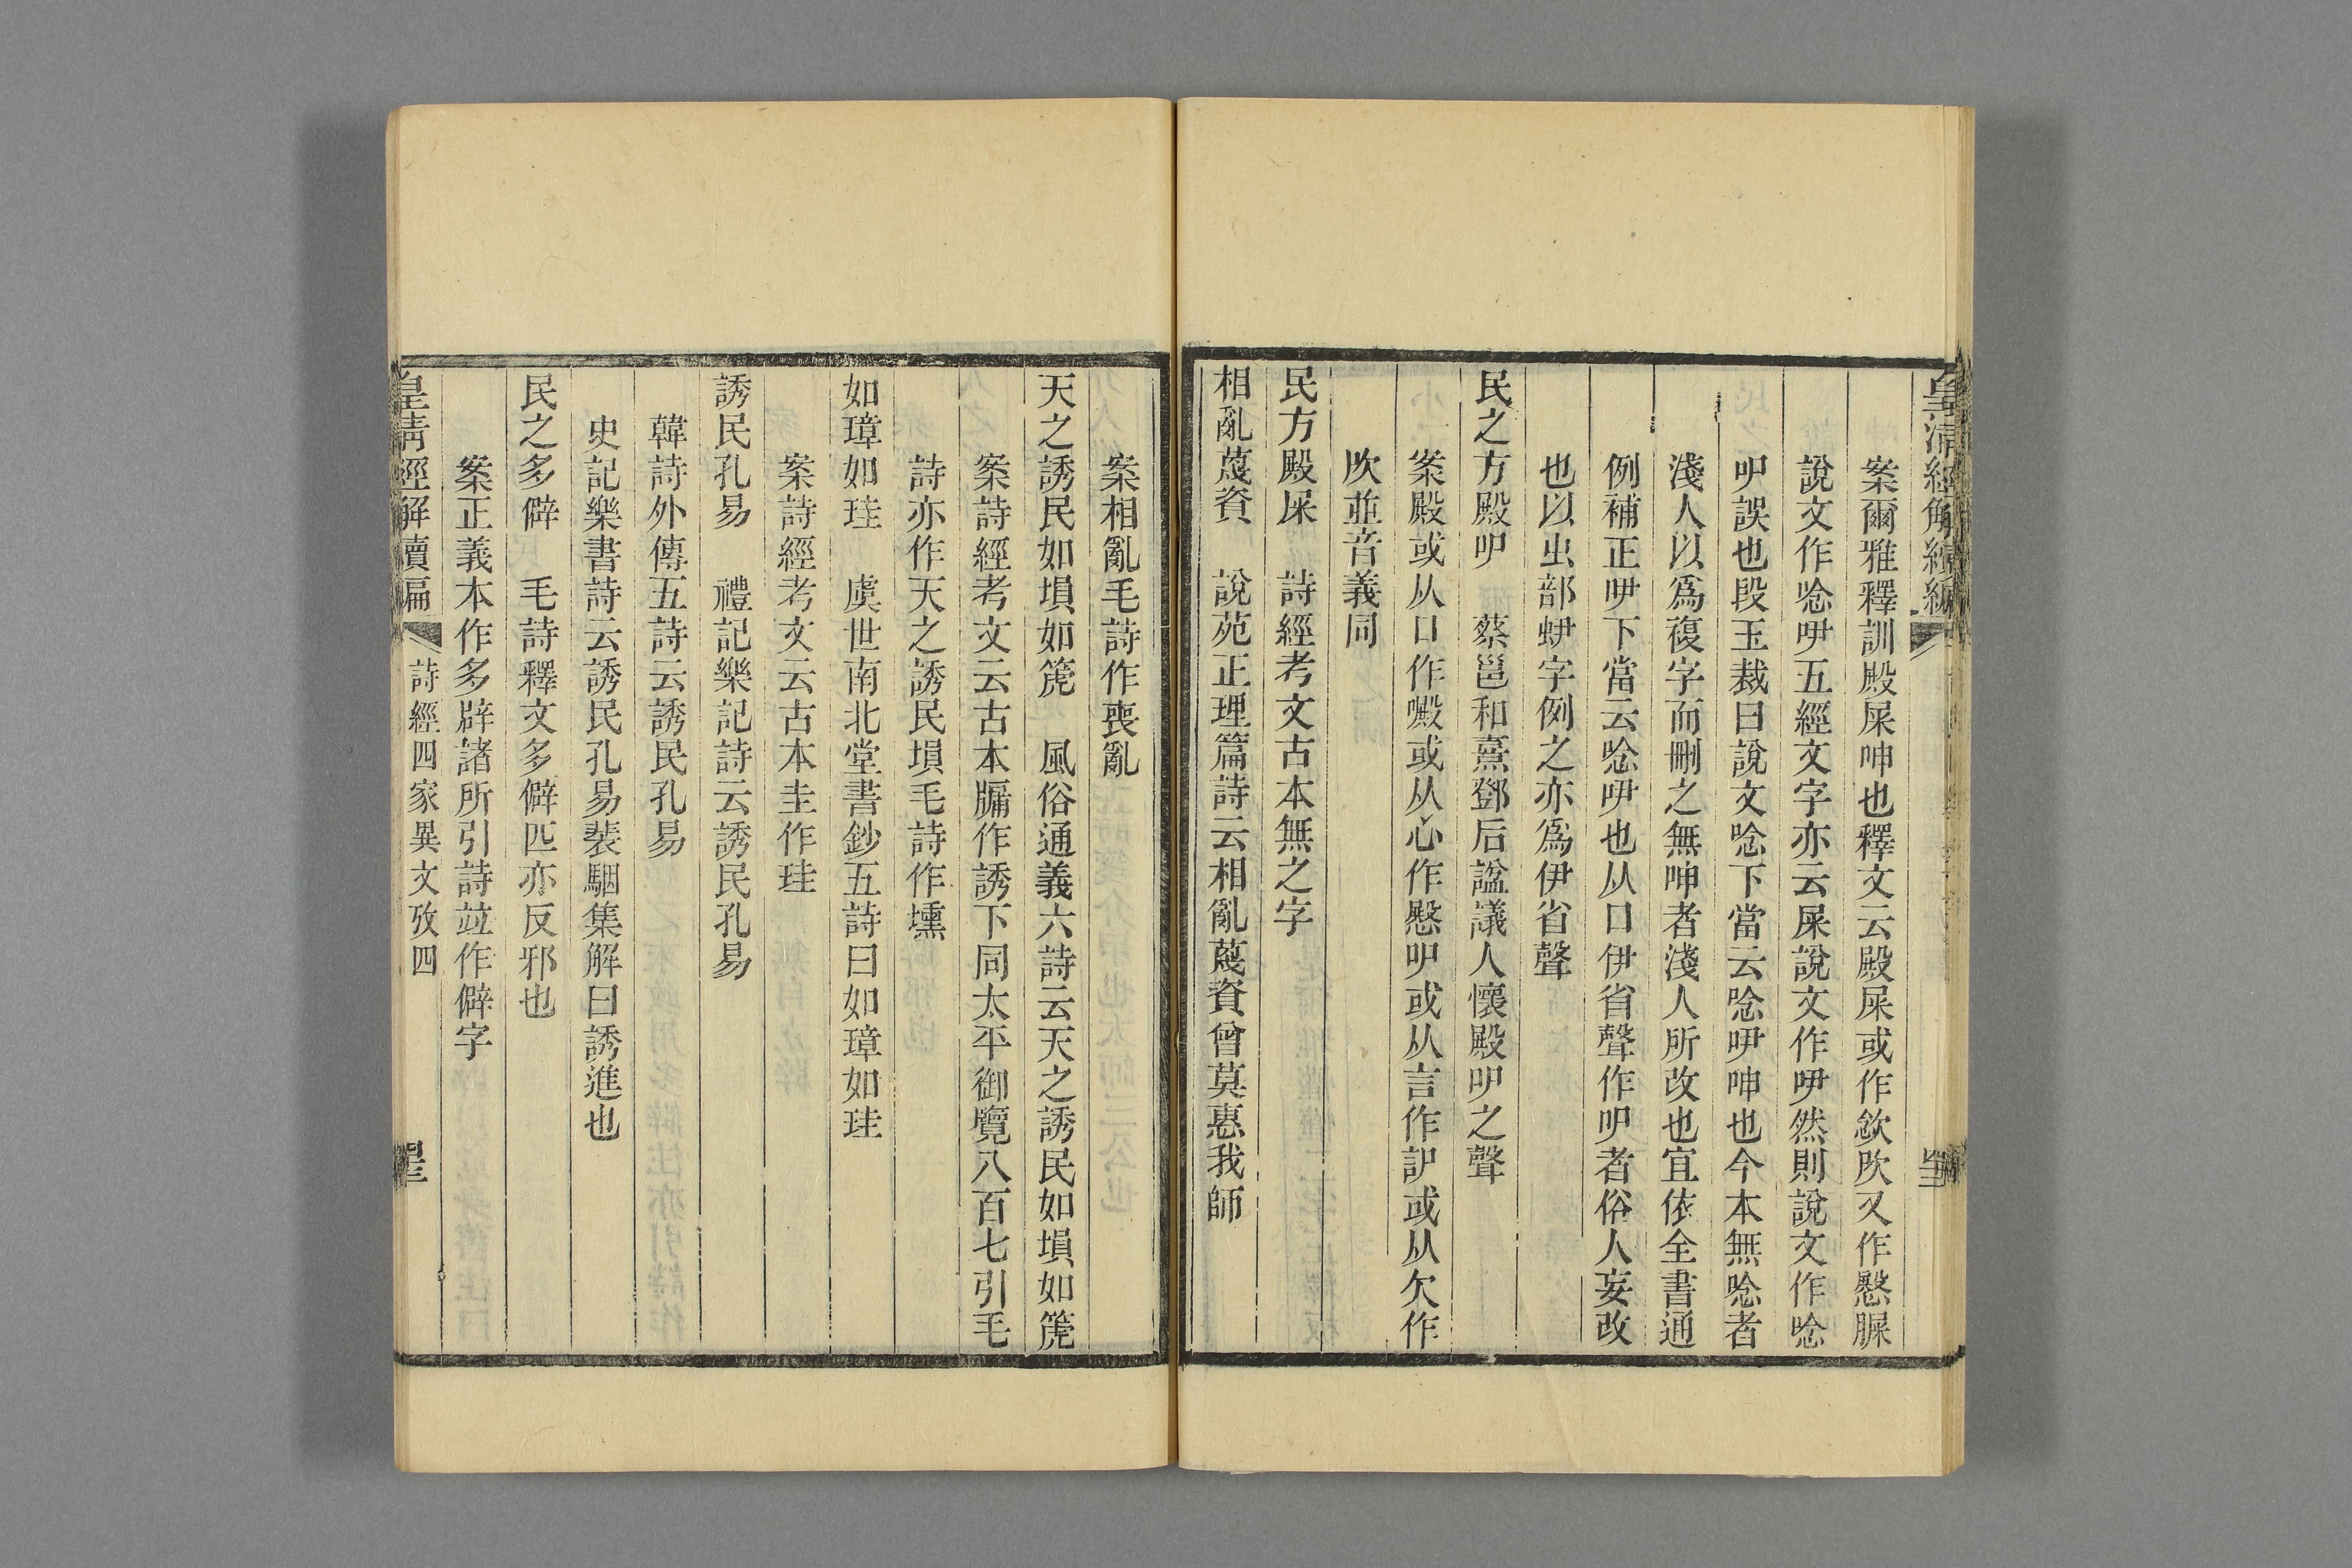 皇清經解續編
案爾雅釋訓殿屎呻也釋文云殿屎或作欨㕧又作慇脲
說文作唸㕧五經文字亦云屎說文作㕧然則說文作唸
吚誤也段玉裁曰說文唸下當云唸㕧呻也今本無唸者
淺人以爲複字而刪之無呻者淺人所改也宜依全書通
例補正㕧下當云唸㕧也从口伊省聲作吚者俗人妄改
也以虫部蛜字例之亦爲伊省聲
民之方殿吚 蔡邕和熹鄧后諡議人懷殿吚之聲
案殿或从口作㗾或从心作慇吚或从言作䚷或从欠作
㰨並音義同
民方殿屎 詩經考文古本無之字
相亂蔑資 說苑正理篇詩云相亂蔑資曾莫惠我師
案相亂毛詩作喪亂
天之誘民如塤如篪 風俗通義六詩云天之誘民如塤如篪
案詩經考文云古本牖作誘下同太平御覽八百七引毛
詩亦作天之誘民塤毛詩作壎
如璋如珪 虞世南北堂書鈔五詩曰如璋如珪
案詩經考文云古本圭作珪
誘民孔易 禮記樂記詩云誘民孔易
韓詩外傳五詩云誘民孔易
史記樂書詩云誘民孔易裴駰集解曰誘進也
民之多僻 毛詩釋文多僻匹亦反邪也
案正義本作多辟諸所引詩竝作僻字
皇清經解續編 詩經四家異文攷四